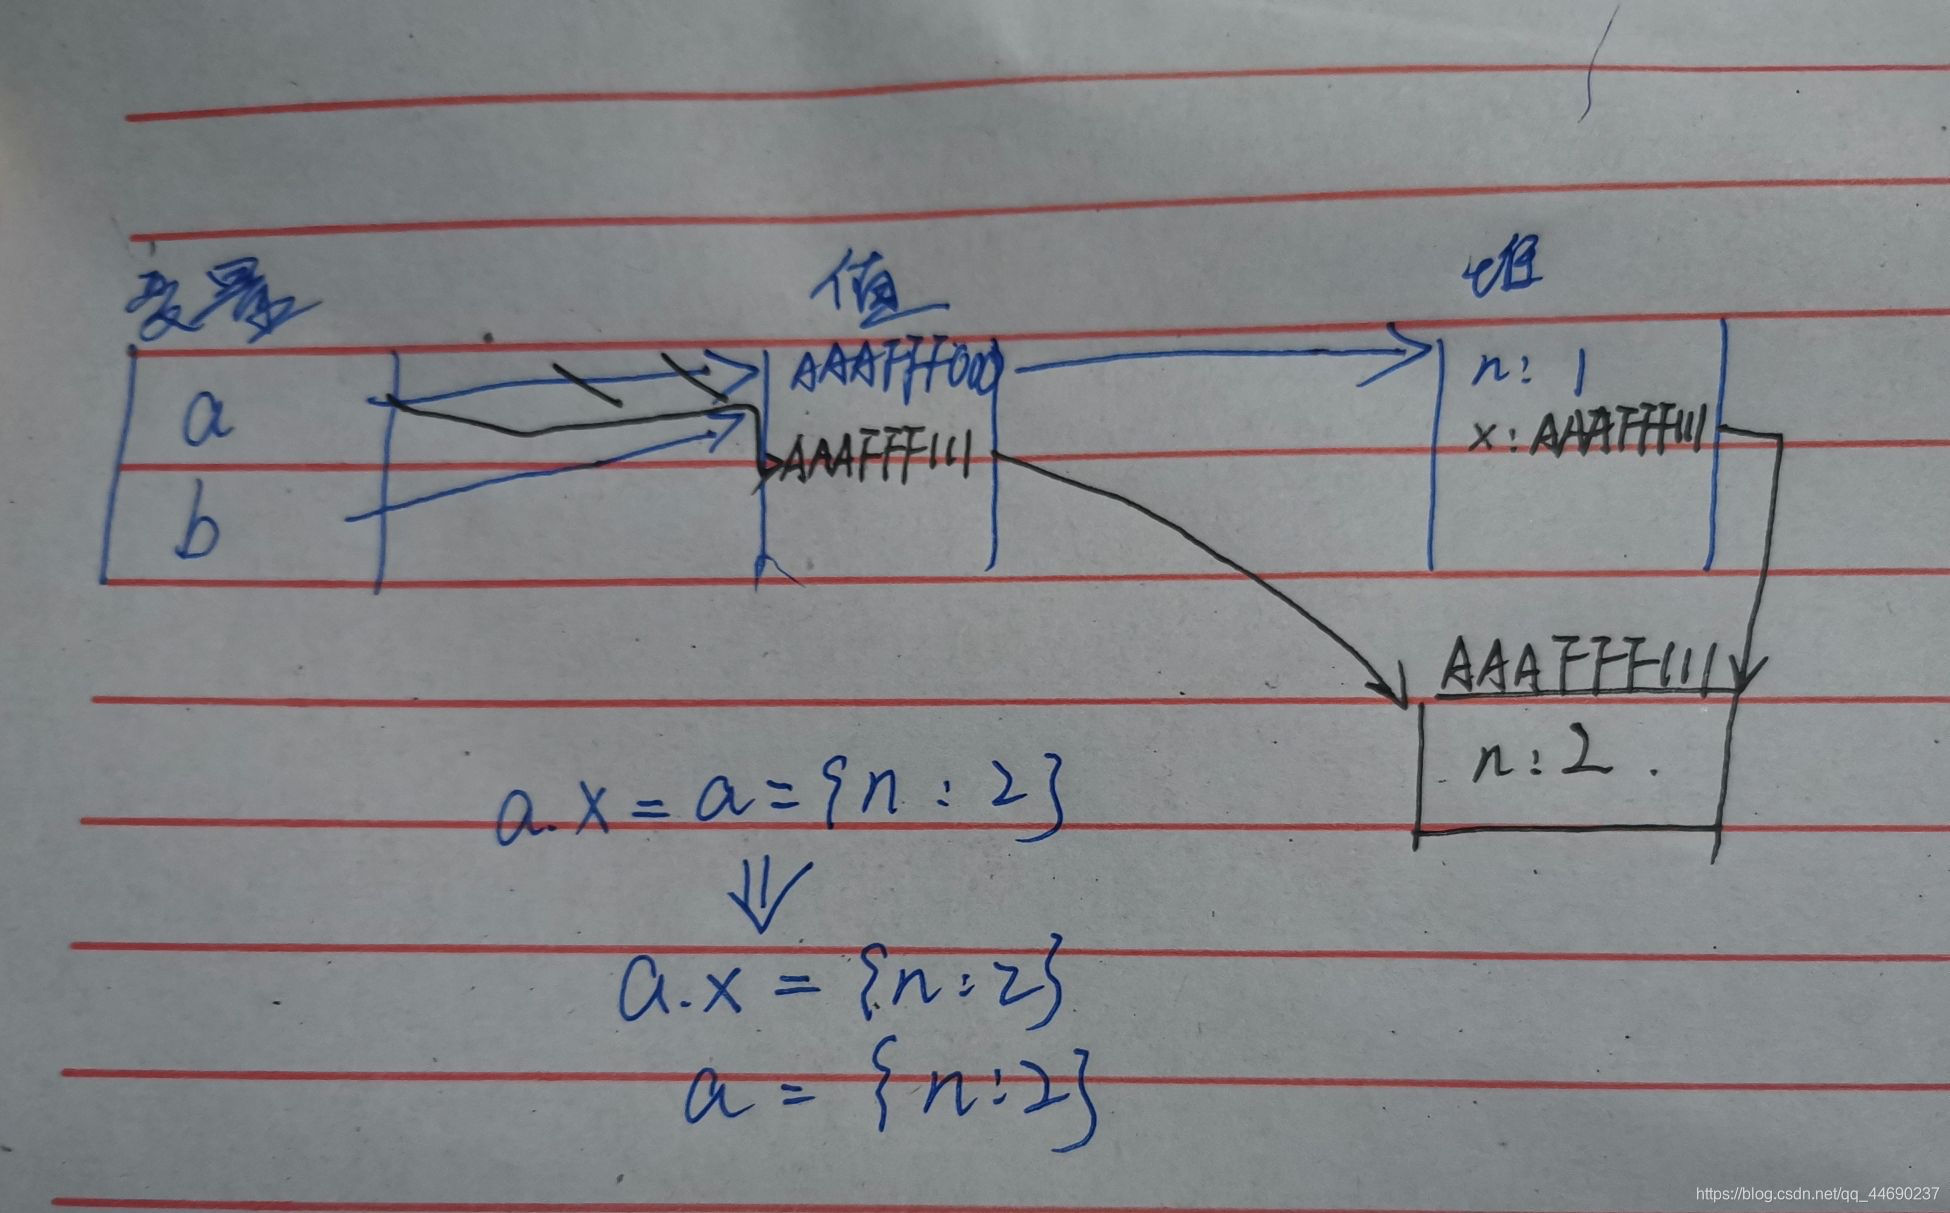 变量 值 堆
a AAAFFF000 n: 1
AAAFFF111 x: AAAFFF111
b
AAAFFF111
n: 2
a.x = a = {n : 2}
⇓
a.x = {n:2}
a = {n:2}
https://blog.csdn.net/qq_44690237